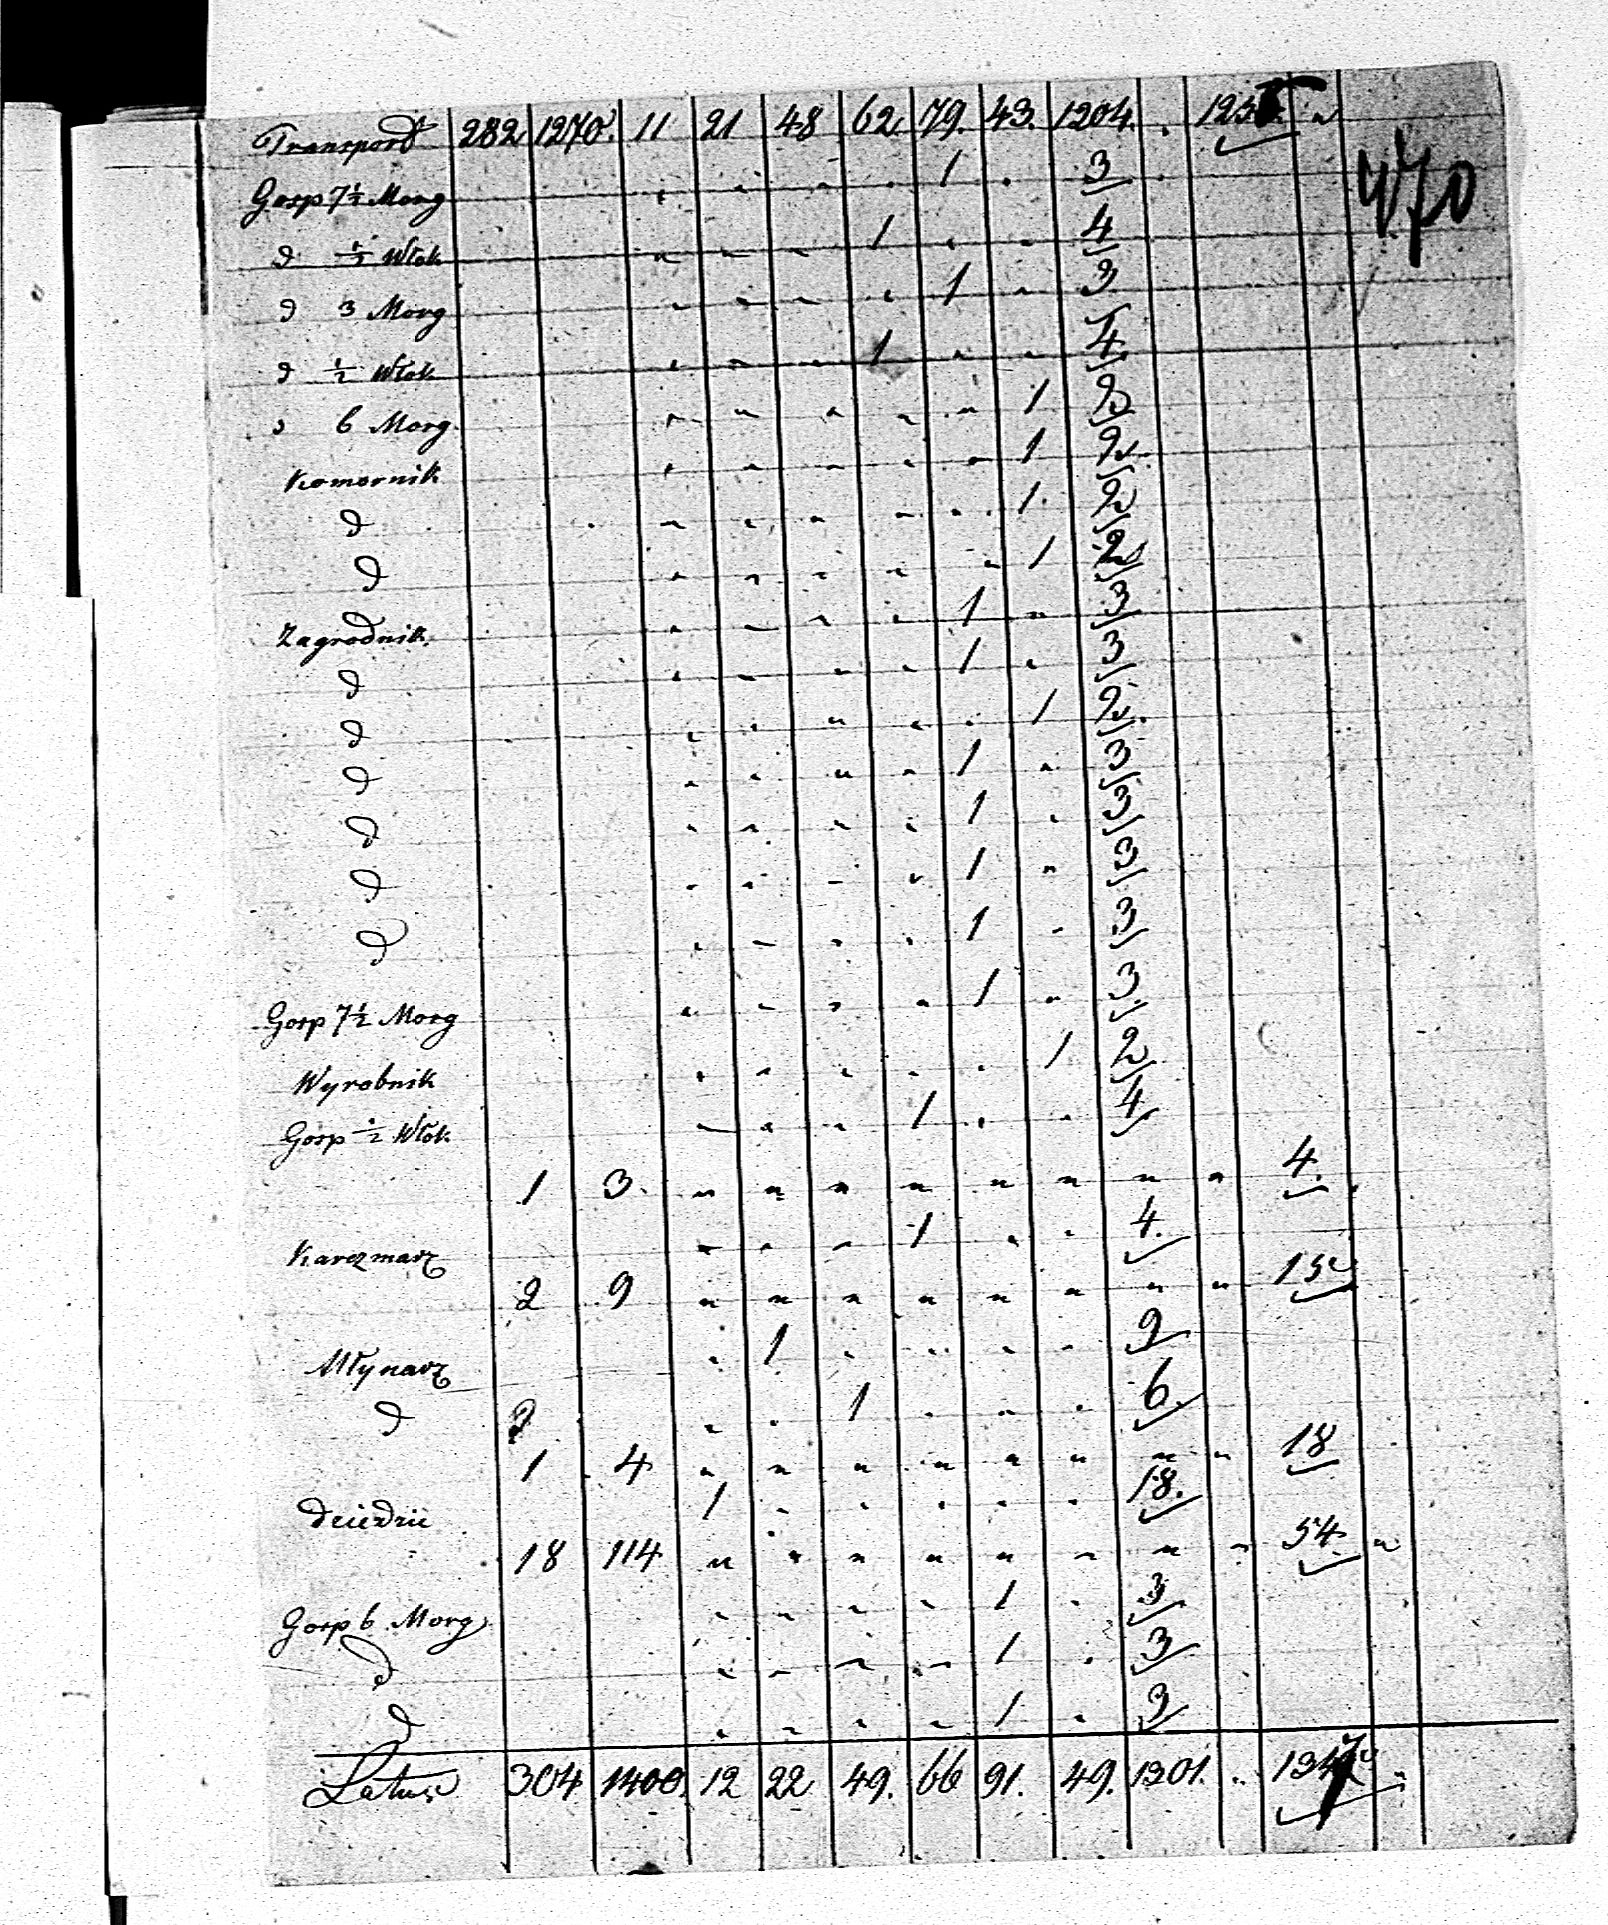 Transport 282 1270. 11 21 48 62 79. 43. 1204. . 123 "
470
Gosp 7½ Morg . . . . 1 . 3
d ½ Włok " " " 1 . . 4
d 3 Morg " " " . 1 . 3
d ½ Włok . " . 1 . . 4
d 6 Morg. " " " " " 1 2
Komornik . " " . " 1 2.
d " . " " . 1. 2
d . " . " " 1 2
Zagrodnik . " " . 1 " 3
d . " " . 1 . 3
d . . " . . 1 2.
d . . " " 1 . 3
d . " " . 1 . 3
d . . " . 1 " 3
d . " . . 1 . 3
Gosp 7½ Morg . " . " 1 " 3.
Wyrobnik . " . . . 1 2
Gosp ½ Włok " " " 1 . . 4
1 3. " " " " " " " " 4.
Karczmarz " . " 1 . . 4.
2 9 " " " " " " " " 15
Młynarz . 1 . . . . 9
d " . 1 . . . 6.
1 4 " " " " " " " " 18
Dziedzic 1 . . . . . 18.
18 114 " " " " " " " " 54. "
Gosp 6 Morg " " " " 1 . 3
d " " " " 1 . 3
d " " " " 1 . 3
Latus 304 1400. 12 22 49. 66 91. 49. 1301. " "